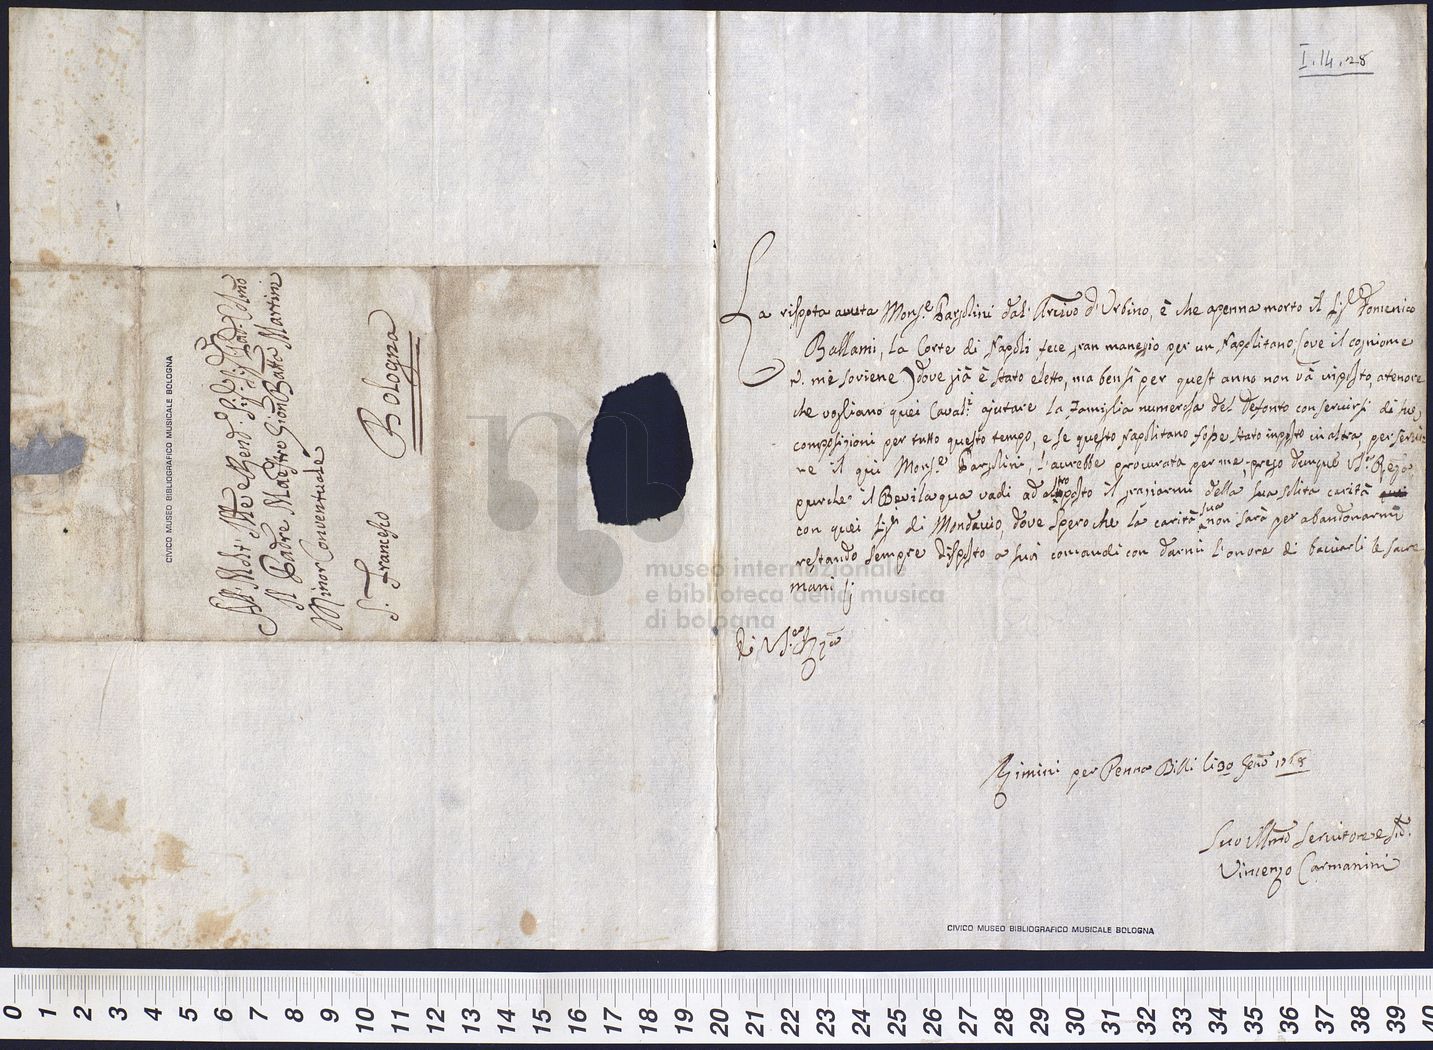 I.14.28
La risposta avuta Mons.e Barzolini dal Arcivo d'Urbino, è che apenna morto il Sig.r Domenico
Ballami, la Corte di Napoli fece gran maneggio per un Napolitano (ove il cogniome
n. me soviene) dove già è stato eletto, ma bensì per quest anno non và in posto, atenore
che vogliano quei Caval.i ajutare la Famiglia numerosa del Defonto con servirsi di sue
composizioni per tutto questo tempo, e se questo Napolitano fosse stato in posto in altra, per
il qui Mons.e Barzolini, l'aurebbe procurata per me, prego dunque
purche il Bevilaqua vadi ad posto il graziarmi della sua solita carità
con quei Sig.ri di Mondavio, dove spero che la carità sua non sarà per abandonarmi
restando sempre disposto a suoi comandi con darmi l'onore di baciarli le sacre
mani
di V.
Rimini per Penna Billi li 30 Gen.o 1768
Suo Servitore e
Vincenzo Carmanini
Al Molt
Il Padre Maestro Gion Batta Martini
Minor Conventuale
S. Francesco
Bologna
CIVICO MUSEO BIBLIOGRAFICO MUSICALE BOLOGNA
CIVICO MUSEO BIBLIOGRAFICO MUSICALE BOLOGNA
museo internazionale
e biblioteca della musica
di bologna
0 1 2 3 4 5 6 7 8 9 10 11 12 13 14 15 16 17 18 19 20 21 22 23 24 25 26 27 28 29 30 31 32 33 34 35 36 37 38 39 40